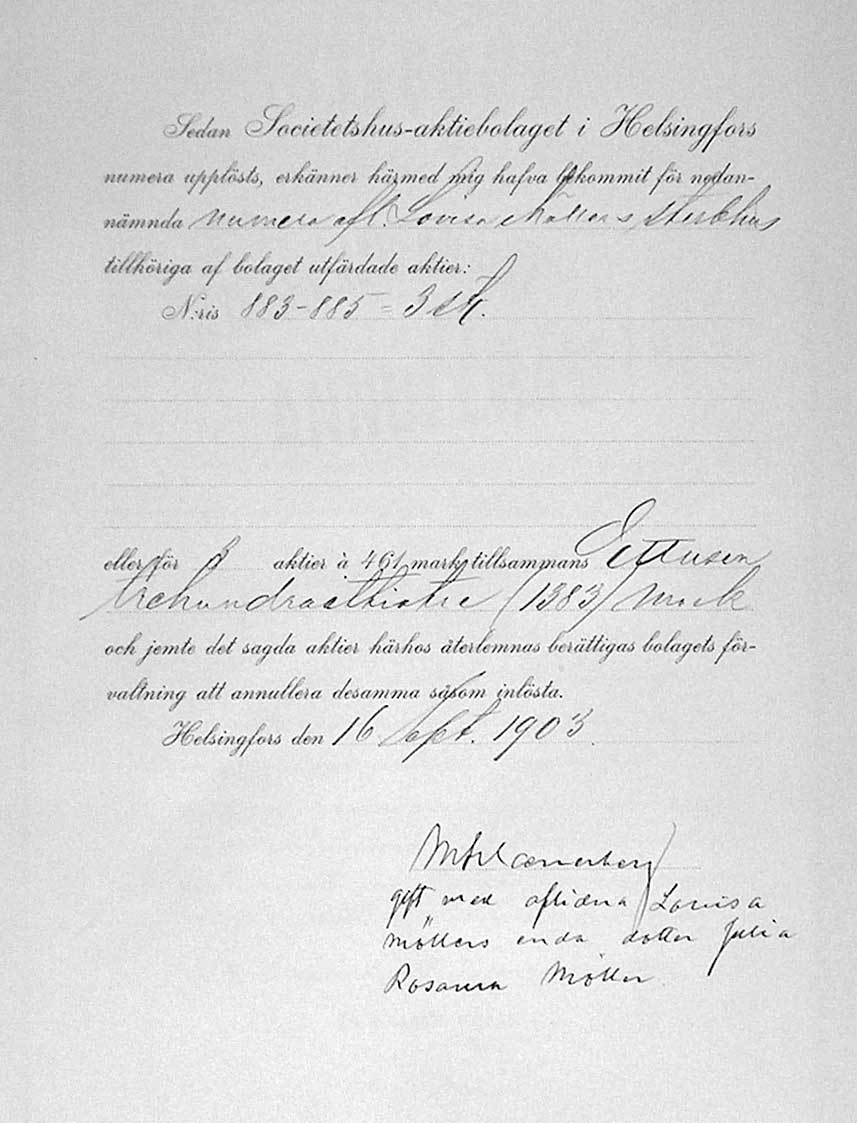 Sedan Societetshus-aktiebolaget i Helsingfors
numera upplösts, erkänner härmed mig hafva bekommit för nedan-
nämnda numera afl. Lovisa Möllers sterbhus
tillhöriga af bolaget utfärdade aktier:
N:ris 883-885 = 3 st.
eller för 3 aktier à 461 mark tillsammans Ettusen
trehundraåttiotre (1383) mark
och jemte det sagda aktier härhos återlemnas berättigas bolagets för-
valtning att annullera desamma såsom inlösta.
Helsingfors den 16 Sept. 1903.
gift med aflidna Lovisa
Möllers enda dotter Julia
Möller